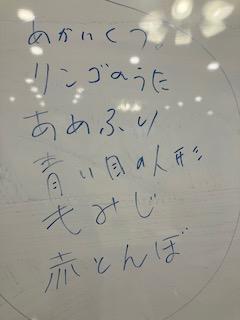 あかいくつ。
リンゴのうた
あめふり
青い目の人形
もみじ
赤とんぼ